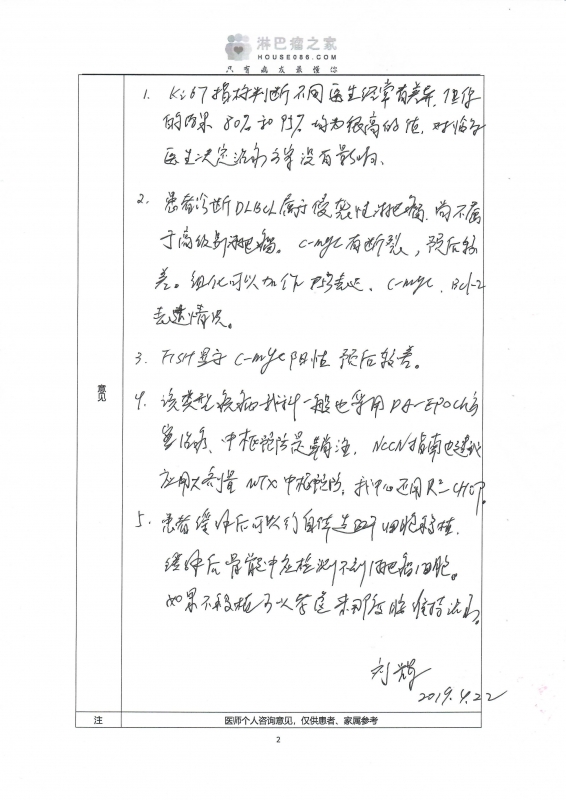 淋巴瘤之家
HOUSE086.COM
只有病友最懂你
1. Ki67指标判断不同医生经常有差异,但你
的结果 80% 和 95% 均为很高的值,对临床
医生决定治疗方案没有影响。
2. 患者诊断DLBCL属于侵袭性淋巴瘤,尚不属
于高级别淋巴瘤。C-myc有断裂,预后较
差。组化可以加作 P53表达、C-myc、Bcl-2
表达情况。
3. FISH显示 C-myc阳性 预后较差。
意见
4. 该类型疾病我科一般也等用 DA-EPOCH方
案治疗、中枢预防是鞘注,NCCN指南也建议
应用大剂量 MTX 中枢预防,我中心还用R2-CHOP。
5. 患者缓解后可以行自体造血干细胞移植,
缓解后骨髓中应检测不到淋巴瘤细胞。
如果不移植可以考虑来那度胺维持治疗。
刘辉
2019.4.22
注
医师个人咨询意见,仅供患者、家属参考
2